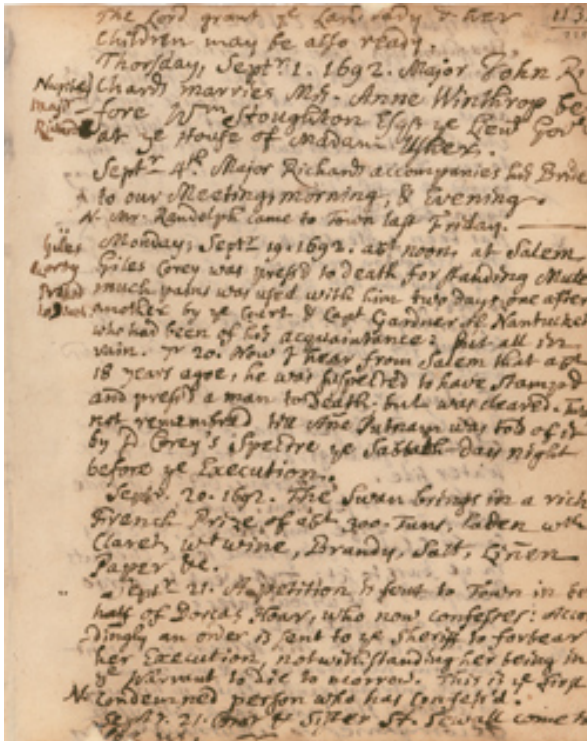 The Lord grant ye Landlady & her
113
Children may be also ready.
Thursday, Septr. 1. 1692. Major John Ri
chards marries Mrs. Anne Winthrop be
fore Wm Stoughton Esqr. ye Lieut Govr
at ye House of Madam Usher.
Septr 4th. Major Richards accompanies his Bride
to our Meeting, morning, & Evening.
N. Mr. Randolph came to Town last Friday.
Giles
Corey
Press'd
to Death
Monday, Septr 19. 1692. abt noon, at Salem,
Giles Corey was press'd to death for standing Mute
much pains was used with him two days, one after
another by ye Court & Capt Gardner of Nantucket
who had been of his acquaintance: but all in
vain. 20. Now I hear from Salem that abt
18 years agoe, he was suspected to have Stamp'd
and press'd a man to Death. but was cleared. Twas
not remembred till Añe Putnam was told of it
by Corey's Spectre ye Sabbath-day night
before ye Execution.
Septr. 20. 1692. The Swan brings in a rich
French Prize of abt 300. Tuns, laden wth
Claret, wt wine, Brandy, Salt, Liñen
Paper &c.
Septr 21. A petition is sent to Town in be
half of Dorcas Hoar, who now confesses: Accor
dingly an order is sent to ye Sheriff to forbear
her Execution, notwithstanding her being in
ye Warrant to die to morrow. This is ye first
N. condemned person who has confess'd.
Septr. 21. & Sister St. Sewall come